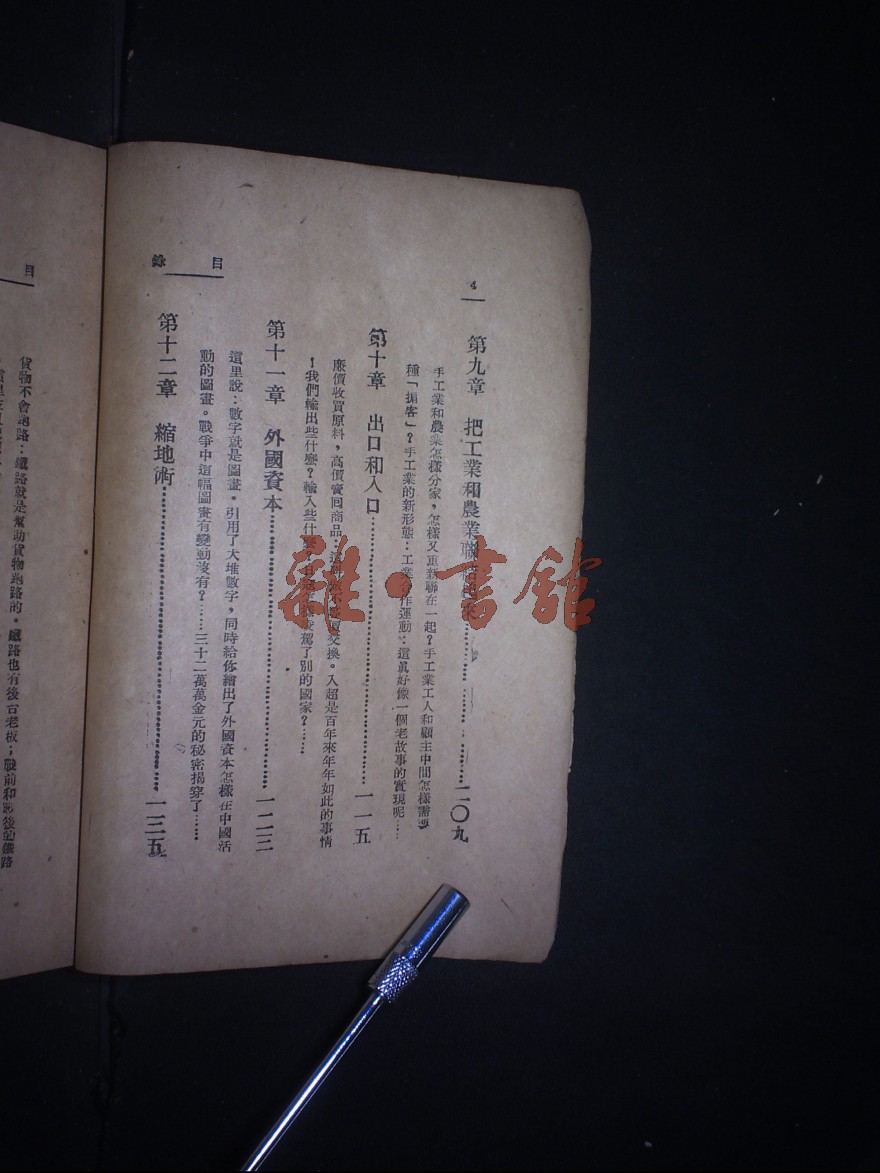 4
目錄
第九章 把工業和農業聯結起來……一〇九
手工業和農業怎樣分家，怎樣又重新聯在一起？手工業工人和顧主中間怎樣需要
種「掮客」？手工業的新形態：工業合作運動：這眞好像一個老故事的實現呢……
第十章 出口和入口……一一五
廉價收買原料，高價賣回商品：這 不 交換。入超是百年來年年如此的事情
！我們輸出些什麼？輸入些什麼？ 駕了別的國家？……
第十一章 外國資本……一二三
這里說：數字就是圖畫。引用了大堆數字，同時給你繪出了外國資本怎樣在中國活
動的圖畫。戰爭中這幅圖畫有變動沒有？……三十二萬萬金元的秘密揭穿了……
第十二章 縮地術……一三五
目
貨物不會跑路：鐵路就是幫助貨物跑路的。鐵路也有後台老板；戰前和戰後的鐵路
雜·書館